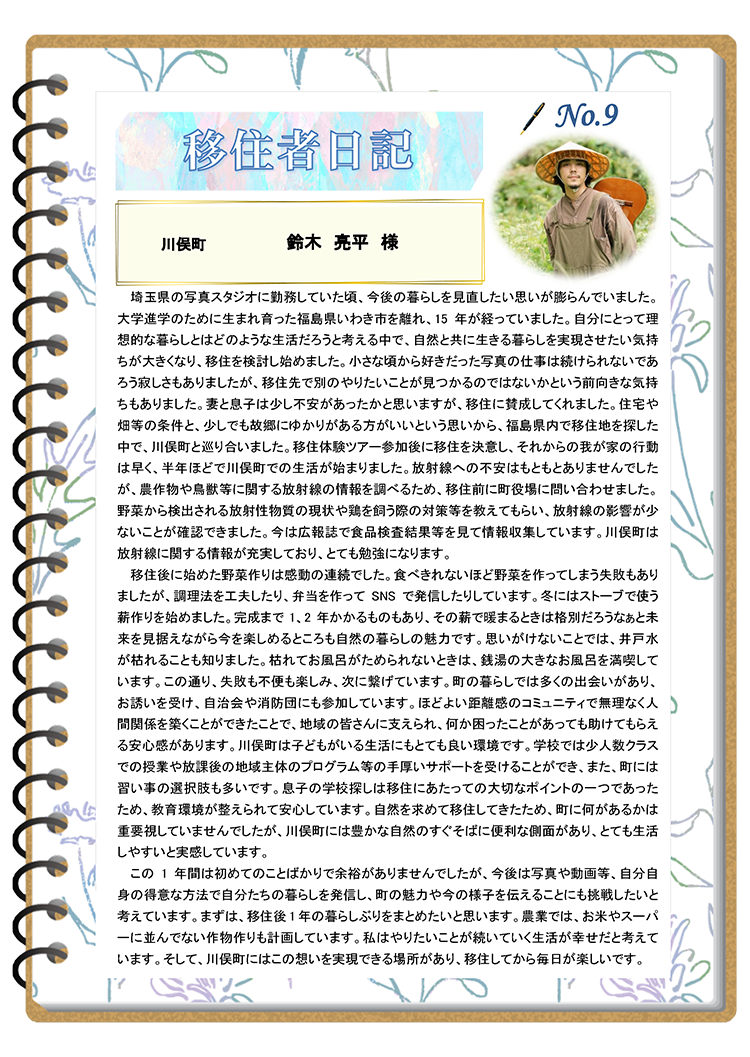 No.9
移住者日記
川俣町　鈴木 亮平 様
埼玉県の写真スタジオに勤務していた頃、今後の暮らしを見直したい思いが膨らんでいました。
大学進学のために生まれ育った福島県いわき市を離れ、15 年が経っていました。自分にとって理
想的な暮らしとはどのような生活だろうと考える中で、自然と共に生きる暮らしを実現させたい気持
ちが大きくなり、移住を検討し始めました。小さな頃から好きだった写真の仕事は続けられないであ
ろう寂しさもありましたが、移住先で別のやりたいことが見つかるのではないかという前向きな気持
ちもありました。妻と息子は少し不安があったかと思いますが、移住に賛成してくれました。住宅や
畑等の条件と、少しでも故郷にゆかりがある方がいいという思いから、福島県内で移住地を探した
中で、川俣町と巡り合いました。移住体験ツアー参加後に移住を決意し、それからの我が家の行動
は早く、半年ほどで川俣町での生活が始まりました。放射線への不安はもともとありませんでした
が、農作物や鳥獣等に関する放射線の情報を調べるため、移住前に町役場に問い合わせました。
野菜から検出される放射性物質の現状や鶏を飼う際の対策等を教えてもらい、放射線の影響が少
ないことが確認できました。今は広報誌で食品検査結果等を見て情報収集しています。川俣町は
放射線に関する情報が充実しており、とても勉強になります。
移住後に始めた野菜作りは感動の連続でした。食べきれないほど野菜を作ってしまう失敗もあり
ましたが、調理法を工夫したり、弁当を作って SNS で発信したりしています。冬にはストーブで使う
薪作りを始めました。完成まで 1、2 年かかるものもあり、その薪で暖まるときは格別だろうなぁと未
来を見据えながら今を楽しめるところも自然の暮らしの魅力です。思いがけないことでは、井戸水
が枯れることも知りました。枯れてお風呂がためられないときは、銭湯の大きなお風呂を満喫して
います。この通り、失敗も不便も楽しみ、次に繋げています。町の暮らしでは多くの出会いがあり、
お誘いを受け、自治会や消防団にも参加しています。ほどよい距離感のコミュニティで無理なく人
間関係を築くことができたことで、地域の皆さんに支えられ、何か困ったことがあっても助けてもらえ
る安心感があります。川俣町は子どもがいる生活にもとても良い環境です。学校では少人数クラス
での授業や放課後の地域主体のプログラム等の手厚いサポートを受けることができ、また、町には
習い事の選択肢も多いです。息子の学校探しは移住にあたっての大切なポイントの一つであった
ため、教育環境が整えられて安心しています。自然を求めて移住してきたため、町に何があるかは
重要視していませんでしたが、川俣町には豊かな自然のすぐそばに便利な側面があり、とても生活
しやすいと実感しています。
この 1 年間は初めてのことばかりで余裕がありませんでしたが、今後は写真や動画等、自分自
身の得意な方法で自分たちの暮らしを発信し、町の魅力や今の様子を伝えることにも挑戦したいと
考えています。まずは、移住後１年の暮らしぶりをまとめたいと思います。農業では、お米やスーパ
ーに並んでない作物作りも計画しています。私はやりたいことが続いていく生活が幸せだと考えて
います。そして、川俣町にはこの想いを実現できる場所があり、移住してから毎日が楽しいです。